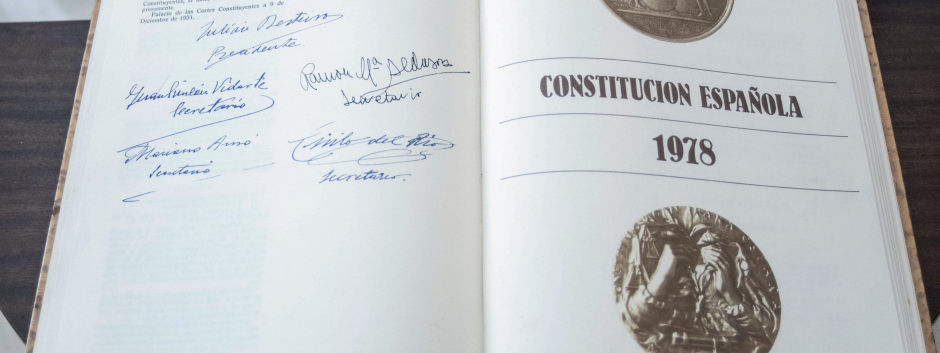 Constituyentes, a
presamente.
Palacio de las Cortes Constituyentes a 9 de
Diciembre de 1931.
Julián Besteiro
Presidente.
Ramón Mª Aldasoro
Secretario
Juan Simeón Vidarte
Secretario
Mariano Ansó
Secretario
Cirilo del Río
Secretario.
CONSTITUCION ESPAÑOLA
1978